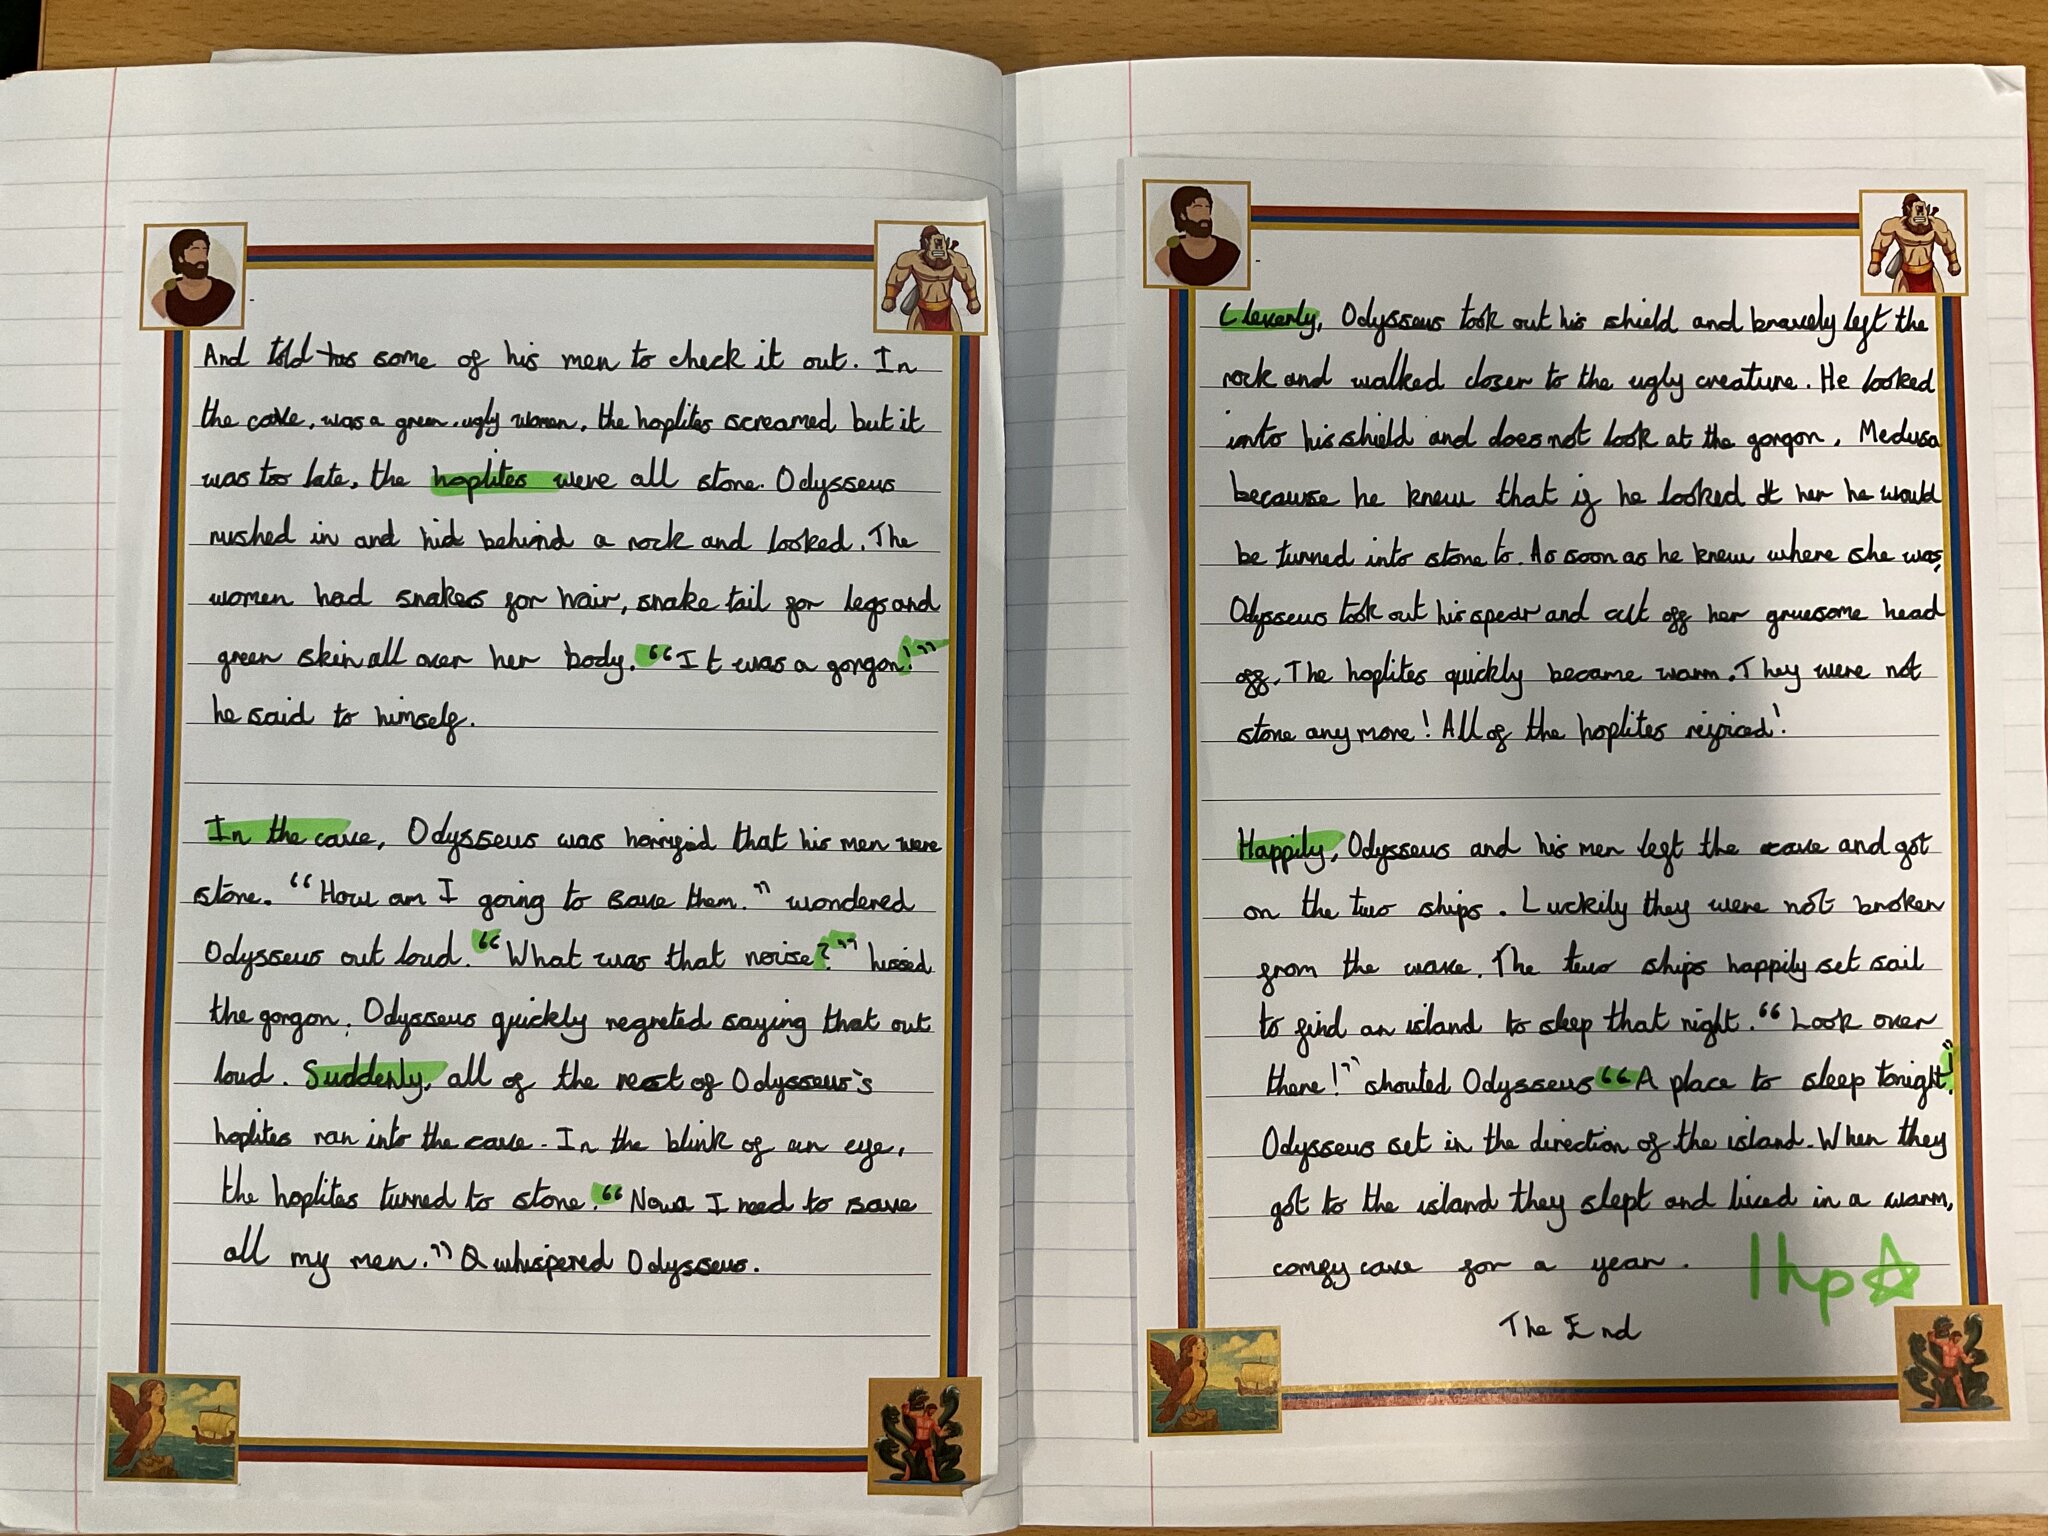 And told his some of his men to check it out. In
the cave, was a green, ugly women, the hoplites screamed but it
was too late, the hoplites were all stone. Odysseus
rushed in and hid behind a rock and looked. The
women had snakes for hair, snake tail for legs and
green skin all over her body. “It was a gorgon!”
he said to himself.
In the cave, Odysseus was horrified that his men were
stone. “How am I going to save them.” wondered
Odysseus out loud. “What was that noise?” hissed
the gorgon. Odysseus quickly regreted saying that out
loud. Suddenly, all of the rest of Odysseus's
hoplites ran into the cave. In the blink of an eye,
the hoplites turned to stone. “Now I need to save
all my men.” whispered Odysseus.
Cleverly, Odysseus took out his shield and bravely left the
rock and walked closer to the ugly creature. He looked
into his shield and does not look at the gorgon, Medusa
because he knew that if he looked at her he would
be turned into stone to. As soon as he knew where she was,
Odysseus took out his spear and cut off her gruesome head
off. The hoplites quickly became warm. They were not
stone any more! All of the hoplites rejoiced!
Happily, Odysseus and his men left the cave and got
on the two ships. Luckily they were not broken
from the wave. The two ships happily set sail
to find an island to sleep that night. “Look over
there!” shouted Odysseus “A place to sleep tonight!”
Odysseus set in the direction of the island. When they
got to the island they slept and lived in a warm,
comfy cave for a year.
1hp
The End